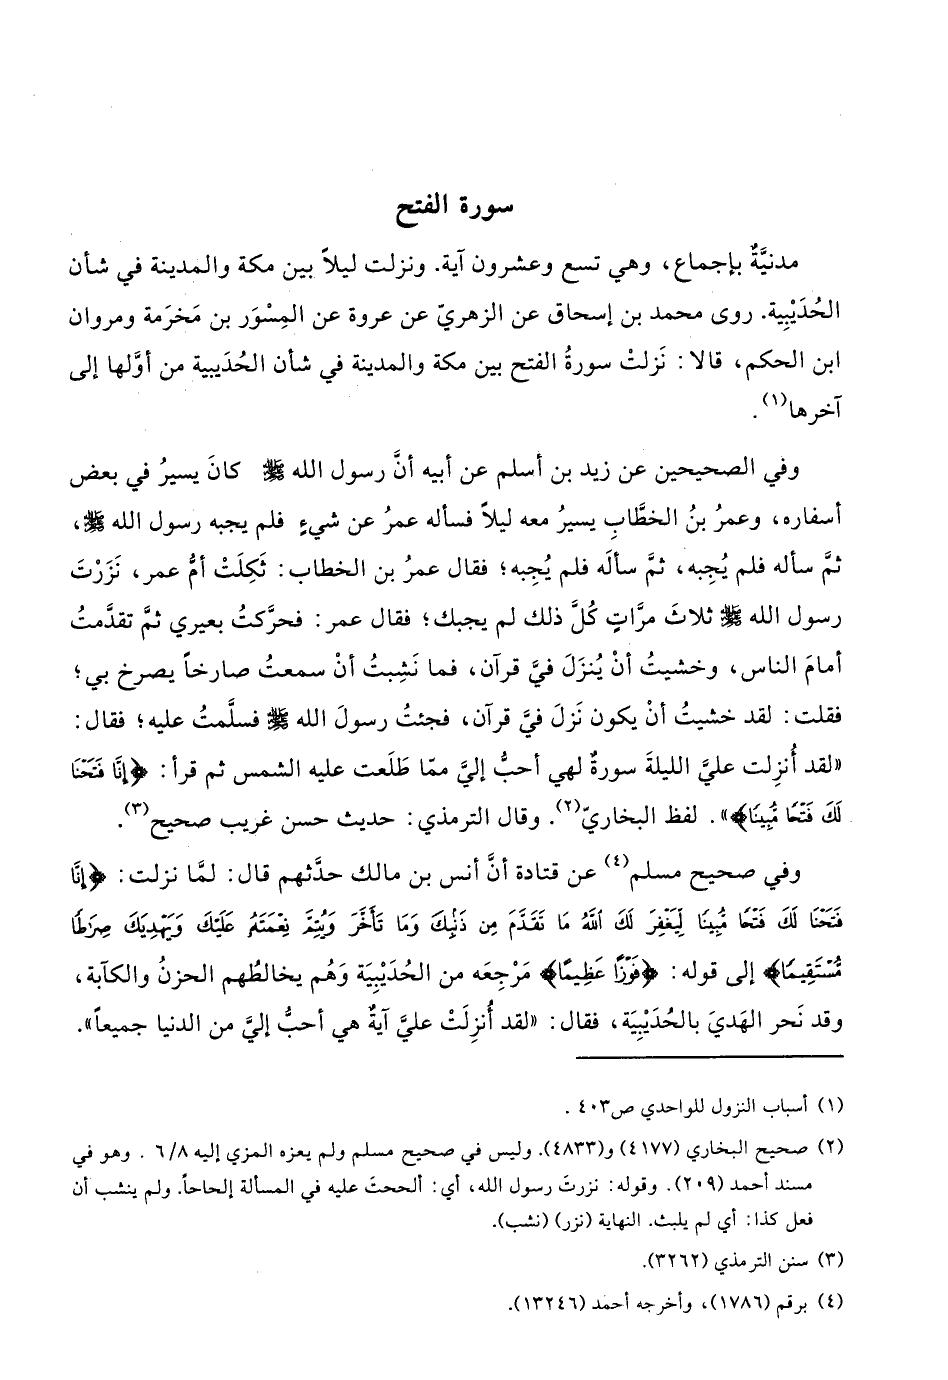 سورة الفتح
مدنيَّةٌ بإجماع، وهي تسع وعشرون آية. ونزلت ليلاً بين مكة والمدينة في شأن
الحُدَيْبِية. روى محمد بن إسحاق عن الزهريّ عن عروة عن المِسْوَر بن مَخرَمة ومروان
ابن الحكم، قالا: نَزلتْ سورةُ الفتح بين مكة والمدينة في شأن الحُدَيبية من أوَّلها إلى
آخرها(١).
وفي الصحيحين عن زيد بن أسلم عن أبيه أنَّ رسول الله ﷺ كانَ يسيرُ في بعض
أسفاره، وعمرُ بنُ الخطَّابِ يسيرُ معه ليلاً فسأله عمرُ عن شيءٍ فلم يجبه رسول الله ﷺ،
ثمَّ سأله فلم يُجِبه، ثمَّ سألَه فلم يُجِبه؛ فقال عمرُ بن الخطاب: ثَكِلَتْ أمُّ عمر، نَزَرْتَ
رسول الله ﷺ ثلاثَ مرَّاتٍ كُلَّ ذلك لم يجبك؛ فقال عمر: فحرَّكتُ بعيري ثمَّ تقدَّمتُ
أمامَ الناس، وخشيتُ أنْ يُنزَلَ فيَّ قرآن، فما نَشِبتُ أنْ سمعتُ صارخاً يصرخ بي؛
فقلت: لقد خشيتُ أنْ يكون نَزلَ فيَّ قرآن، فجئتُ رسولَ الله ﷺ فسلَّمتُ عليه؛ فقال:
«لقد أُنزِلت عليَّ الليلةَ سورةٌ لهي أحبُّ إليَّ ممّا طَلَعت عليه الشمس ثم قرأ: ﴿إِنَّا فَتَحْنَا
لَكَ فَتْحًا مُّبِينًا﴾». لفظ البخاريّ(٢). وقال الترمذي: حديث حسن غريب صحيح(٣).
وفي صحيح مسلم(٤) عن قتادة أنَّ أنس بن مالك حدَّثهم قال: لمَّا نزلت: ﴿إِنَّا
فَتَحْنَا لَكَ فَتْحًا مُّبِينًا لِّيَغْفِرَ لَكَ اللَّهُ مَا تَقَدَّمَ مِن ذَنۢبِكَ وَمَا تَأَخَّرَ وَيُتِمَّ نِعْمَتَهُۥ عَلَيْكَ وَيَهْدِيَكَ صِرَٰطًا
مُّسْتَقِيمًا﴾ إلى قوله: ﴿فَوْزًا عَظِيمًا﴾ مَرْجِعَه من الحُدَيْبِيَة وَهُم يخالطُهم الحزنُ والكآبة،
وقد نَحر الهَديَ بالحُدَيْبِيَة، فقال: «لقد أُنزِلَتْ عليَّ آيةٌ هي أحبُّ إليَّ من الدنيا جميعاً».
(١) أسباب النزول للواحدي ص٤٠٣ .
(٢) صحيح البخاري (٤١٧٧) و(٤٨٣٣). وليس في صحيح مسلم ولم يعزه المزي إليه ٦/٨ . وهو في
مسند أحمد (٢٠٩). وقوله: نزرتَ رسول الله، أي: ألححتَ عليه في المسألة إلحاحاً. ولم ينشب أن
فعل كذا: أي لم يلبث. النهاية (نزر) (نشب).
(٣) سنن الترمذي (٣٢٦٢).
(٤) برقم (١٧٨٦)، وأخرجه أحمد (١٣٢٤٦).